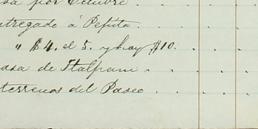 sa por Octubre
ntregado á Pepita
" $4. el 5. y hay $10.
asa de Tlalpam
terrenos del Paseo